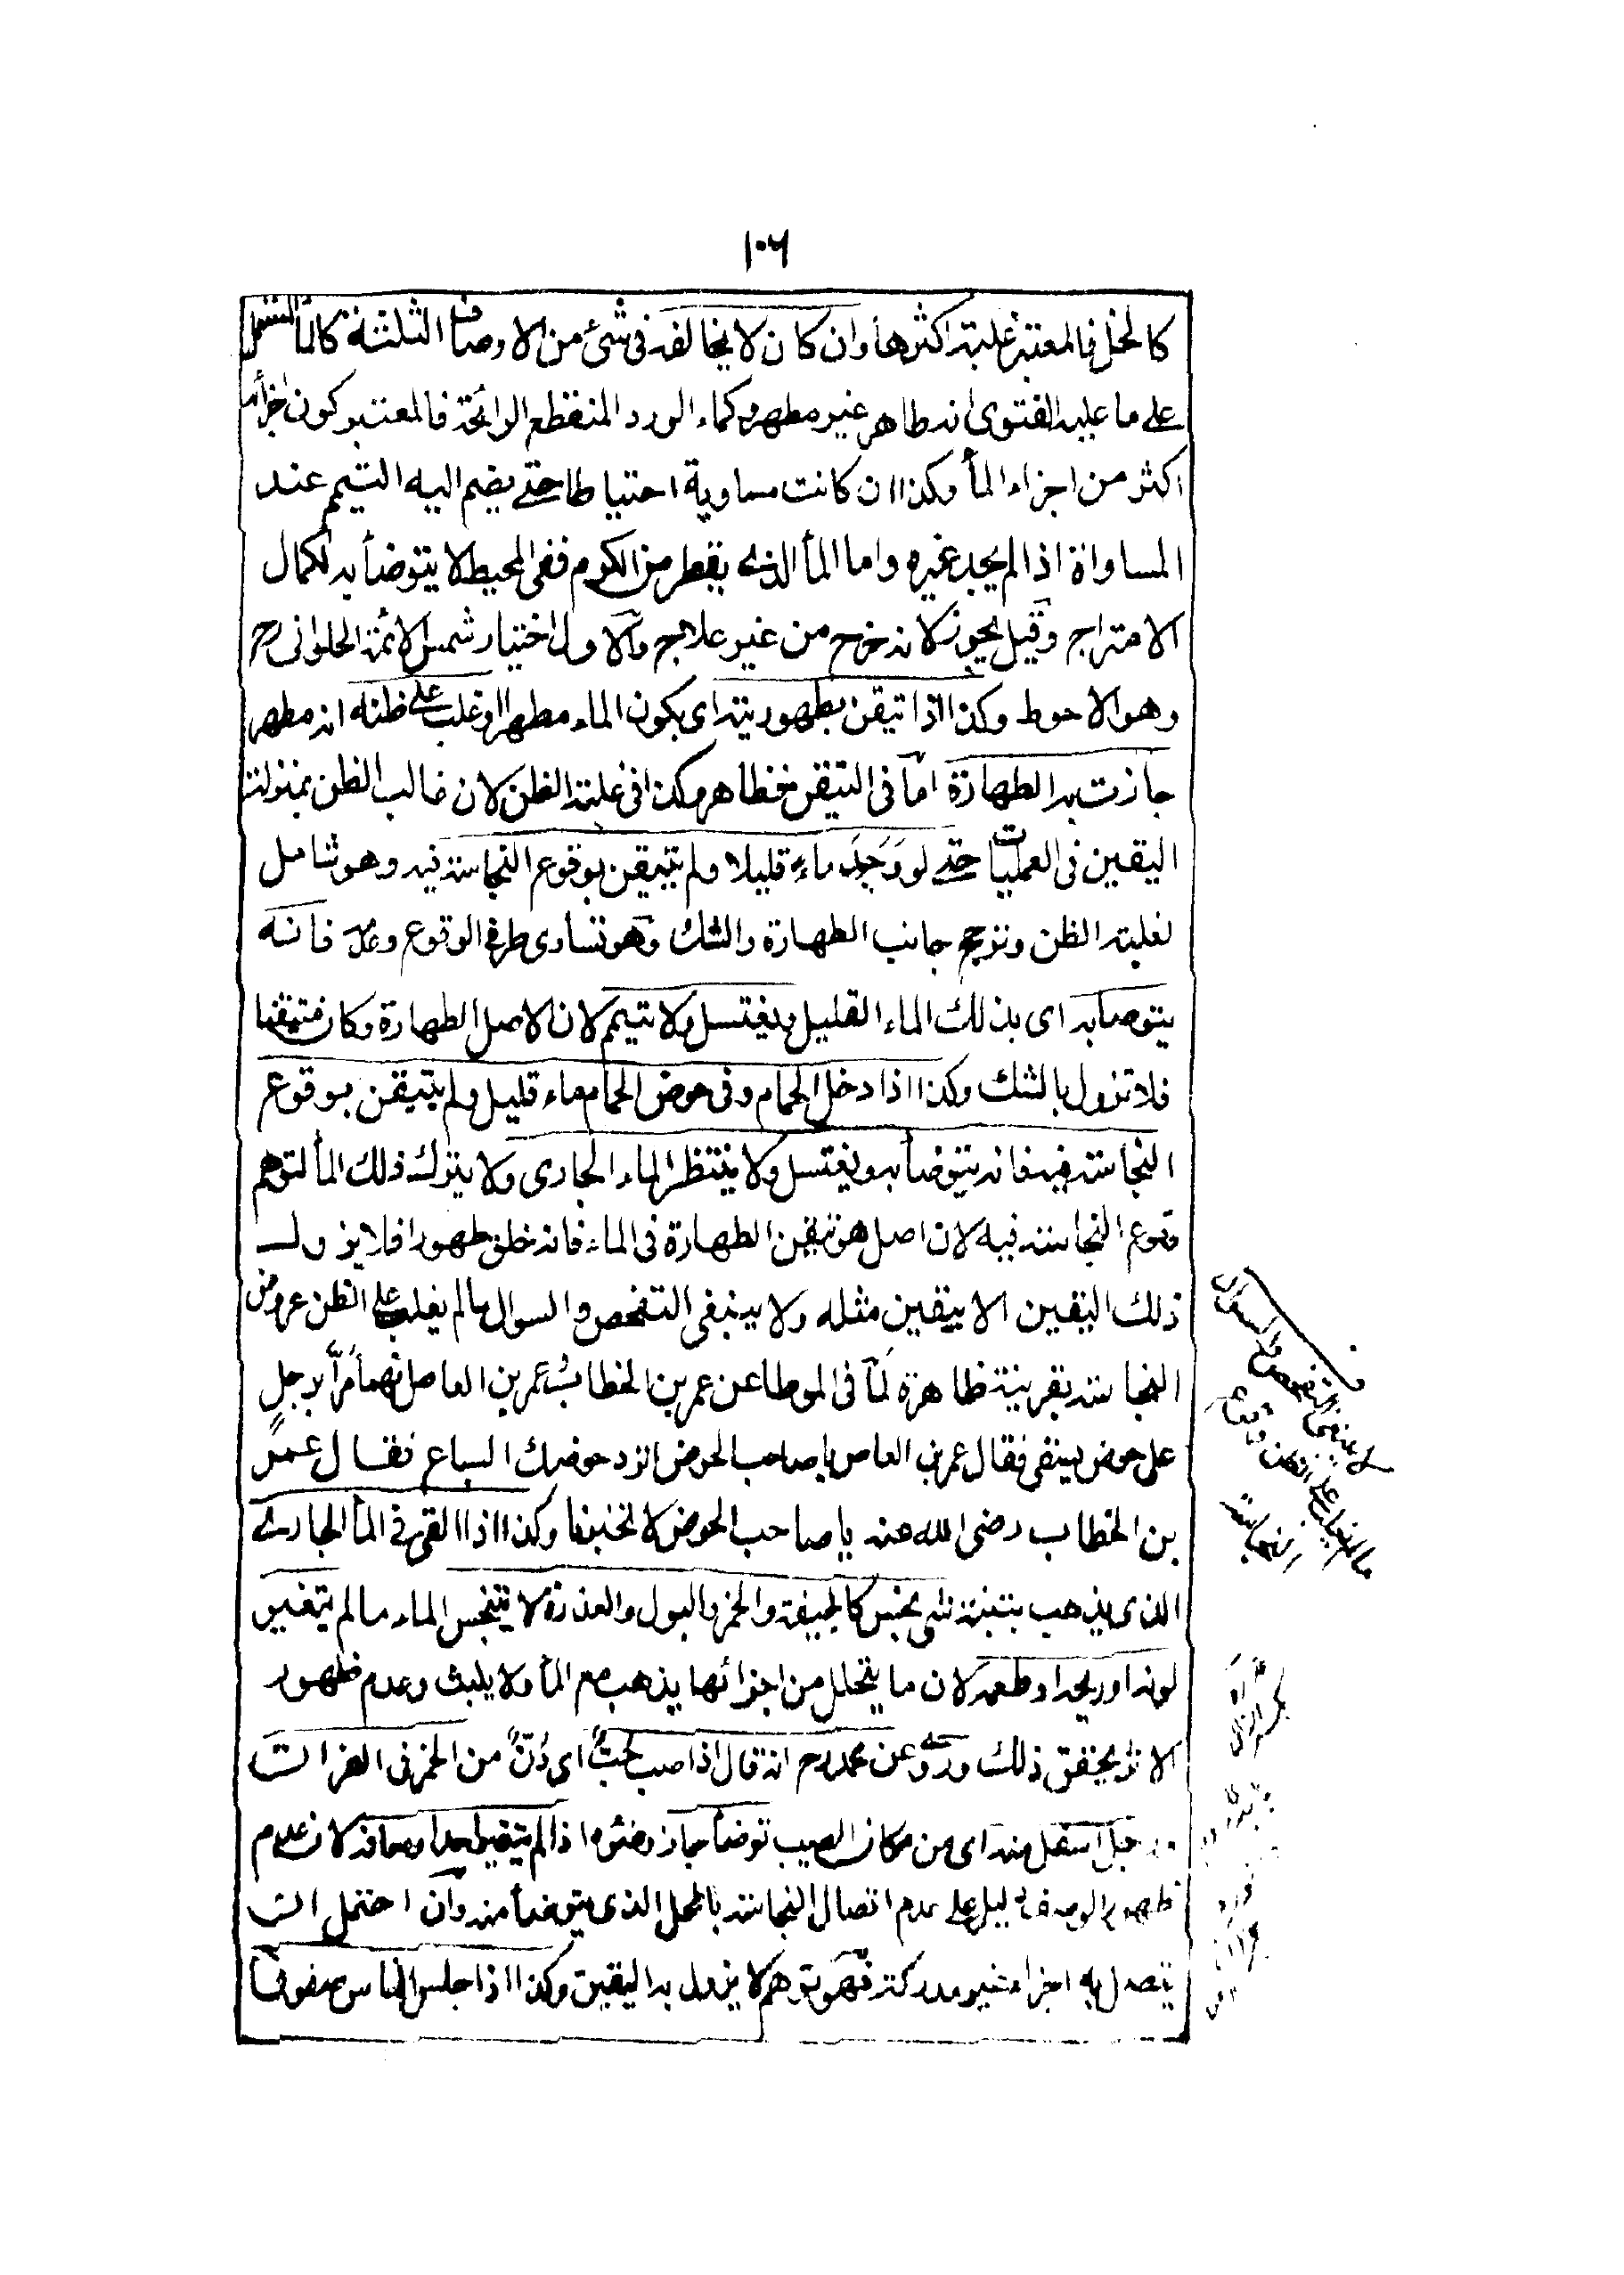 ١٠٦
كالخل فالمعتبر غلبة اكثرها وان كان لا يخالفه فى شئ من الاوصاف الثلثة كالمأ المستعمل
على ما عليه الفتوى انه طاهر غير مطهر وكماء الورد المنقطع الرائحة فالمعتبر كون اجزائه
اكثر من اجزاء المأ وكذا ان كانت مساوية احتياطا حتى يضم اليه التيمم عند
المساواة اذا لم يجد غيره واما المأ الذى يقطر من الكرم ففى المحيط لا يتوضأ به لكمال
الامتزاج وقيل يجوز لانه خرج من غير علاج والاول اختيار شمس الائمة الحلوانى رح
وهو الاحوط وكذا اذا تيقن بطهوريته اى بكون الماء مطهرا او غلب على ظنه انه مطهر
جازت به الطهارة اما فى التيقن فظاهر وكذا فى غلبة الظن لان غالب الظن بمنزلة
اليقين فى العمليات حتى لو وَجَدَ ماءً قليلا ولم يتيقن بوقوع النجاسة فيه وهو شامل
لغلبة الظن وترجح جانب الطهارة والشك وهو تساوى طرفى الوقوع وعدمه فانه
يتوضأ به اى بذلك الماء القليل ويغتسل ولا يتيمم لان الاصل الطهارة وكان متيقنا
فلا تزول بالشك وكذا اذا دخل الحمام وفى حوض الحمام ماء قليل ولم يتيقن بوقوع
النجاسة فيه فانه يتوضأ به ويغتسل ولا ينتظر الماء الجارى ولا يترك ذلك المأ لتوهم
وقوع النجاسة فيه لان اصل هو تيقن الطهارة فى الماء فانه خلق طهورا فلا يزول
ذلك اليقين الا بيقين مثله ولا ينبغى التفحص والسوال ما لم يغلب على الظن عروض
النجاسة بقرينة ظاهرة لما فى الموطا عن عمر بن الخطاب عمر بن العاص انهما مرّا برجل
على حوض يسقى فقال عمر بن العاص يا صاحب الحوض اترد حوضك السباع فقال عمر
بن الخطاب رضى الله عنه يا صاحب الحوض لا تخبرنا وكذا اذا القى فى المأ الجارى
الذى يذهب بتبنة شى نجس كالجيفة والخمر والبول والعذرة لا يتنجس الماء ما لم يتغير
لونه او ريحه او طعمه لان ما يتحلل من اجزائها يذهب مع المأ ولا يلبث وعدم ظهور
الاثر يحقق ذلك وروى عن محمد رح انه قال اذا صب حُبٌّ اى دُنٌّ من الخمر فى الفرات
رجل اسفل منه اى من مكان الصب توضأ جاز وضوء اذا لم يتغير احد اوصافه لان عدم
ظهور الوصف دليل على عدم اتصال النجاسة بالمحل الذى يتوضأ منه وان احتمل ان
يتصل به اجزاء غير مدركة فهو توهم لا يزول به اليقين وكذا اذا جلس الناس صفوفا
لا ينبغى التفحص والسوال
ما لم يغلب على الظن وقوع
النجاسة